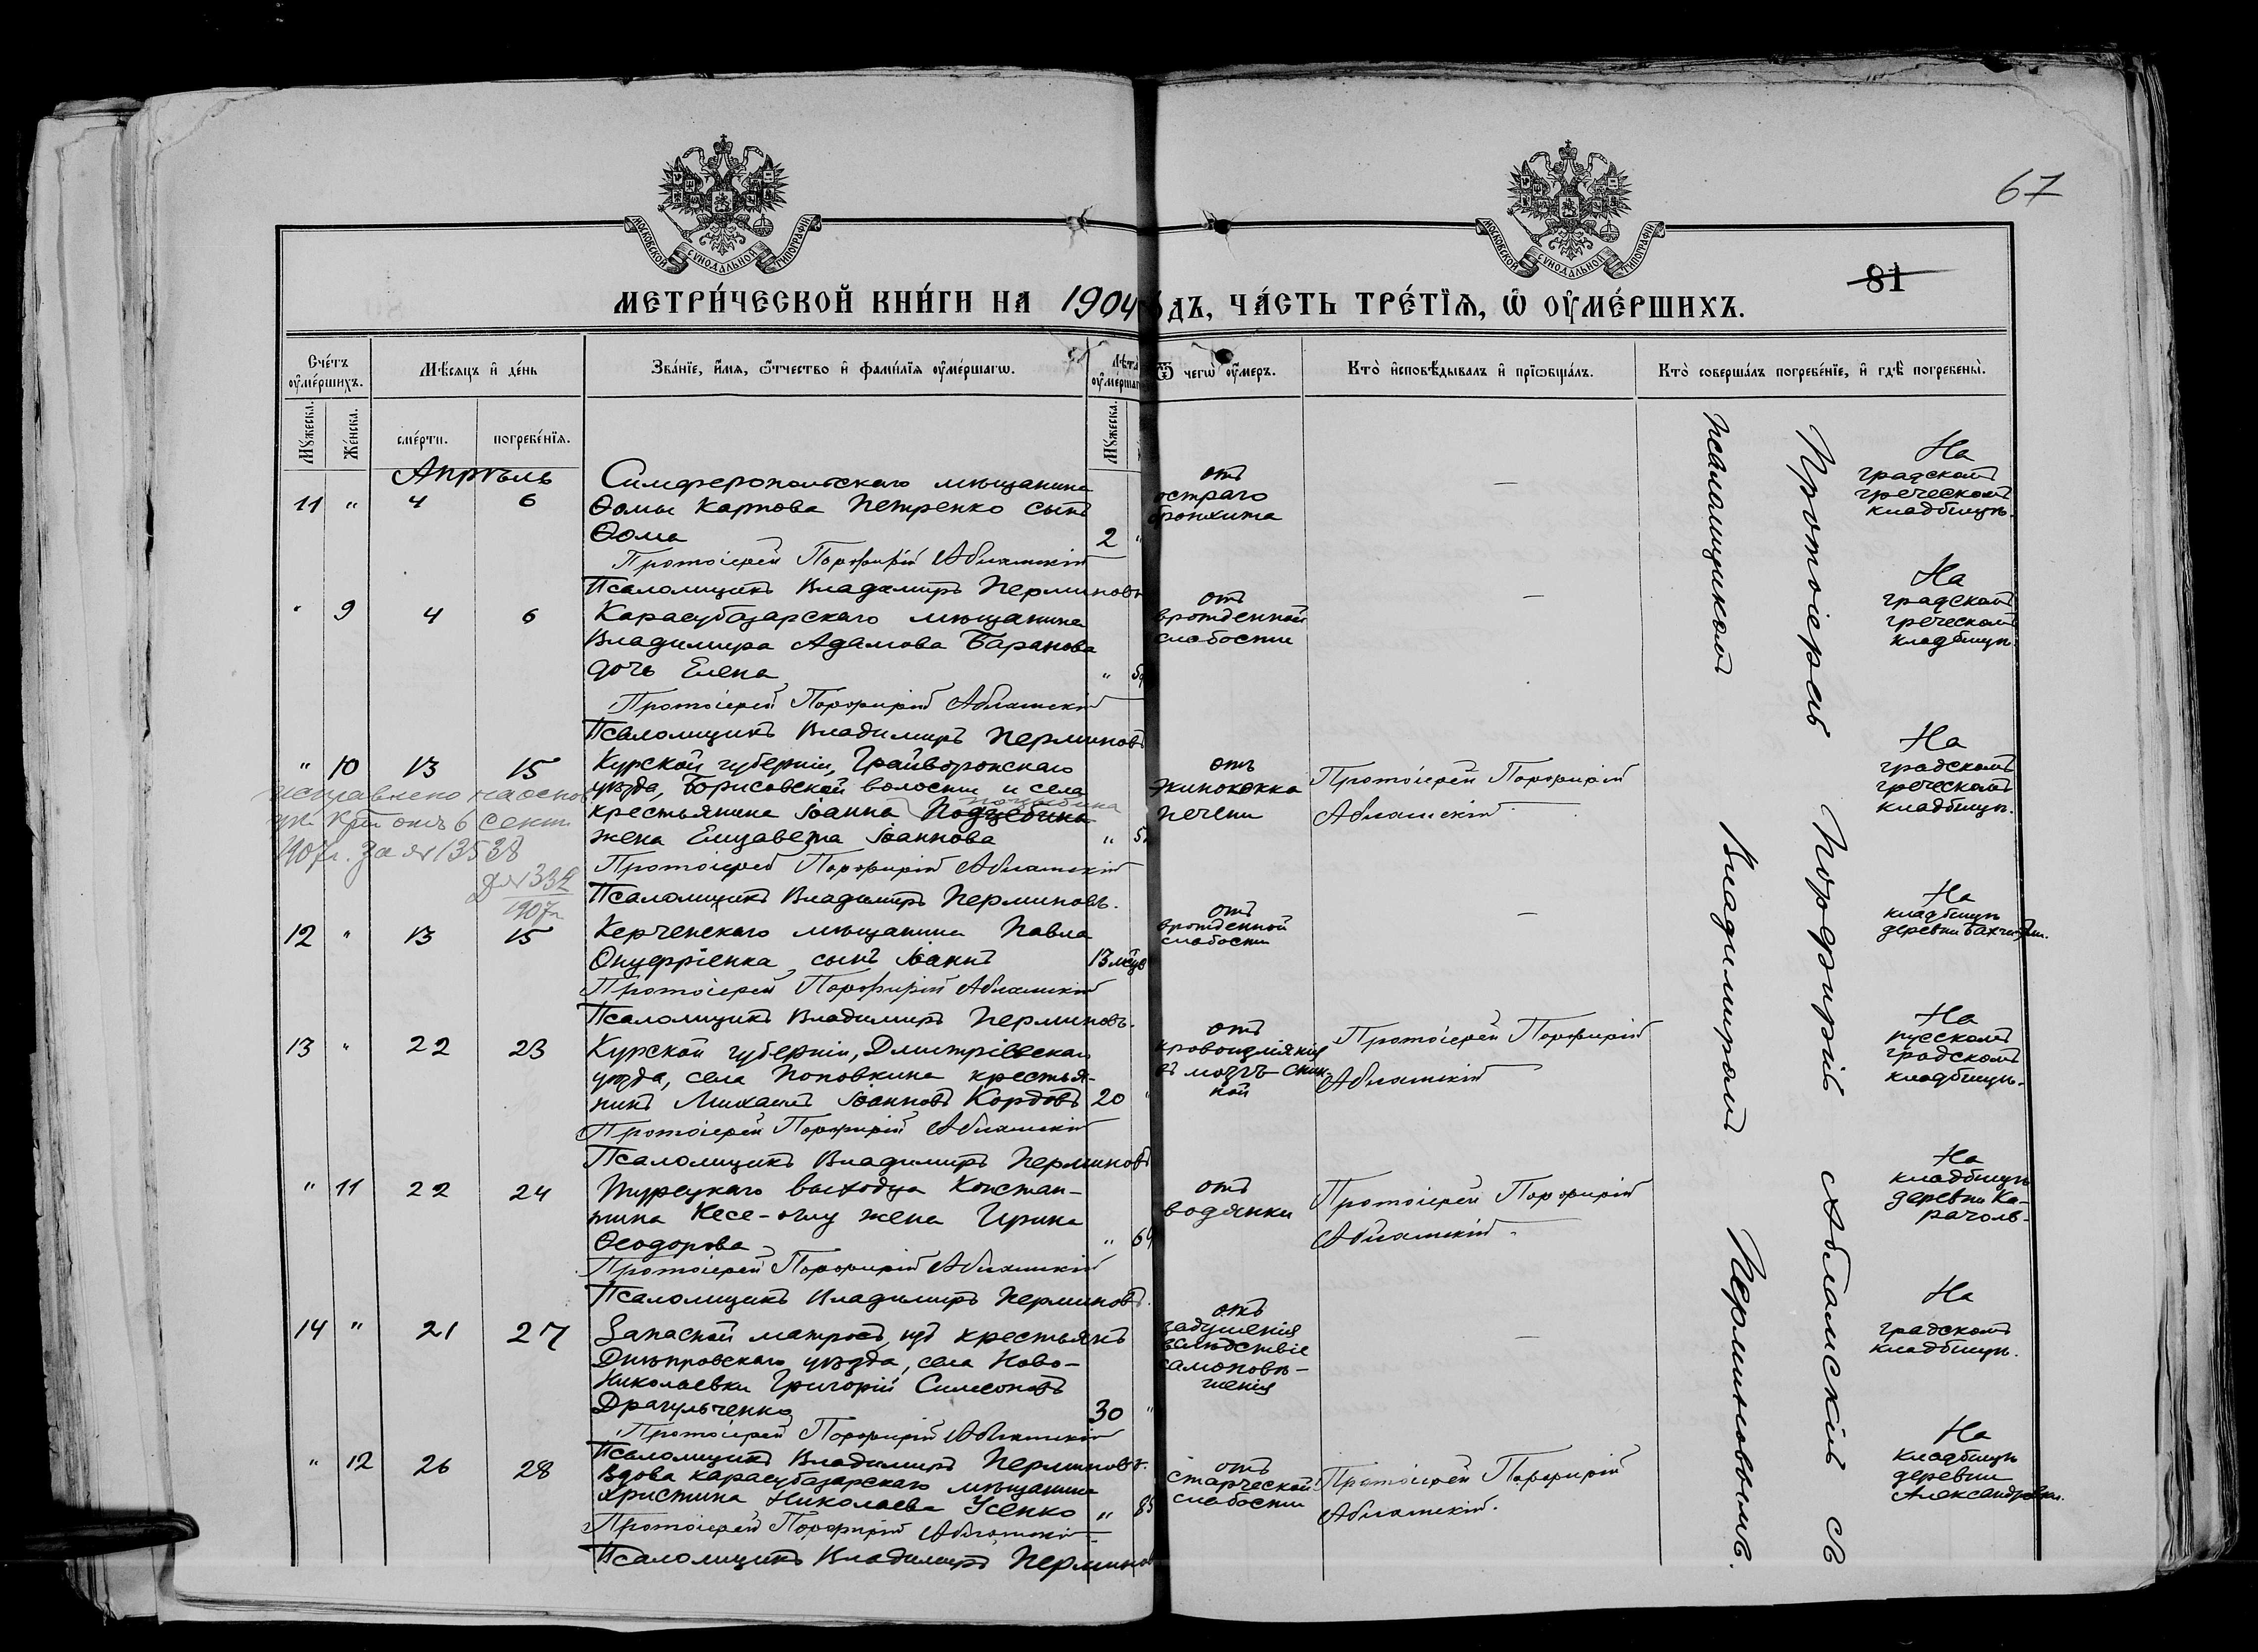 МОСКОВСКОЙ СѴНОДАЛЬНОЙ ТИПОГРАФІИ
МОСКОВСКОЙ СѴНОДАЛЬНОЙ ТИПОГРАФІИ
67
81
МЕТРИ́ЧЕСКОЙ КНИ́ГИ НА 1904
ДЪ, ЧА́СТЬ ТРЕ́ТІѦ, Ѡ҆ ОУ҆МЕ́РШИХЪ.
Сче́тъ оу҆ме́ршихъ.
Мѣ́сяцъ и҆ де́нь
Зва́нїе, и҆́мѧ, ѻ҆́тчество и҆ фами́лїѧ оу҆ме́ршагѡ.
Лѣта
оу҆ме́ршаг
Ѿ чегѡ̀ оу҆́меръ.
Кто̀ и҆сповѣ́дывалъ и҆ прїѡбща́лъ.
Кто̀ соверша́лъ погребе́нїе, и҆ гдѣ̀ погребены̀.
Мꙋ́жеска.
Же́нска.
сме́рти.
погребе́нїѧ.
Мꙋ́жеска.
Апрѣль
11 " 4 6
Симферопольскаго мѣщанина
Ѳомы Карпова Петренко сынъ
Ѳома 2 "
Протоіерей Порфирій Абламскій
Псаломщикъ Владимиръ Перминовъ
отъ
остраго
бронхита
—
На
градскомъ
греческомъ
кладбищѣ.
" 9 4 6
Карасубазарскаго мѣщанина
Владимира Адамова Баранова
дочь Елена "
Протоіерей Порфирій Абламскій
Псаломщикъ Владимиръ Перминовъ
отъ
врожденной
слабости
—
На
градскомъ
греческомъ
кладбищѣ.
" 10 13 15
Курской губерніи, Грайворонскаго
уѣзда, Борисовской волости и села
крестьянина Іоанна Подцебина
жена Елизавета Іоаннова "
Протоіерей Порфирій Абламскій
Псаломщикъ Владимиръ Перминовъ.
исправлено на основ
отъ 6 сент.
1907г. за № 13538
Д № 332
1907г
отъ
эхинококка
печени
Протоіерей Порфирій
Абламскій.
На
градскомъ
греческомъ
кладбищѣ.
12 " 13 15
Керченскаго мѣщанина Павла
Онуфріенка, сынъ Іоаннъ 13 мѣц
Протоіерей Порфирій Абламскій
Псаломщикъ Владимиръ Перминовъ.
отъ
врожденной
слабости
—
На
кладбищѣ
деревни
13 " 22 23
Курской губерніи, Дмитріевскаго
уѣзда, села Поповкина крестья-
нинъ Михаилъ Іоанновъ Кордовъ 20 "
Протоіерей Порфирій Абламскій
Псаломщикъ Владимиръ Перминовъ
отъ
кровоизліянія
въ мозгъ спин-
ной
Протоіерей Порфирій
Абламскій
На
русскомъ
градскомъ
кладбищѣ.
" 11 22 24
Турецкаго выходца Констан-
тина Кесе-оглу жена Ирина
Ѳеодорова "
Протоіерей Порфирій Абламскій
Псаломщикъ Владимиръ Перминовъ.
отъ
водянки
Протоіерей Порфирій
Абламскій.
На
кладбищѣ
деревни Ка-
рачоль.
14 " 21 27
Запасной матросъ, изъ крестьянъ
Днѣпровскаго уѣзда, села Ново-
Николаевки Григорій Симеоновъ
Драгульченко 30 "
Протоіерей Порфирій Абламскій
Псаломщикъ Владимиръ Перминовъ.
отъ
задушенія
вслѣдствіе
самоповѣ-
шенія
—
На
градскомъ
кладбищѣ.
" 12 26 28
Вдова карасубазарскаго мѣщанина
Христина Николаева Усенко " 85
Протоіерей Порфирій Абламскій
Псаломщикъ Владимиръ Пермин
отъ
старческой
слабости
Протоіерей Порфирій
Абламскій.
На
кладбищѣ
деревни
Александровки.
Протоіерей Порфирій Абламскій съ
псаломщикомъ Владимиромъ Перминовымъ.